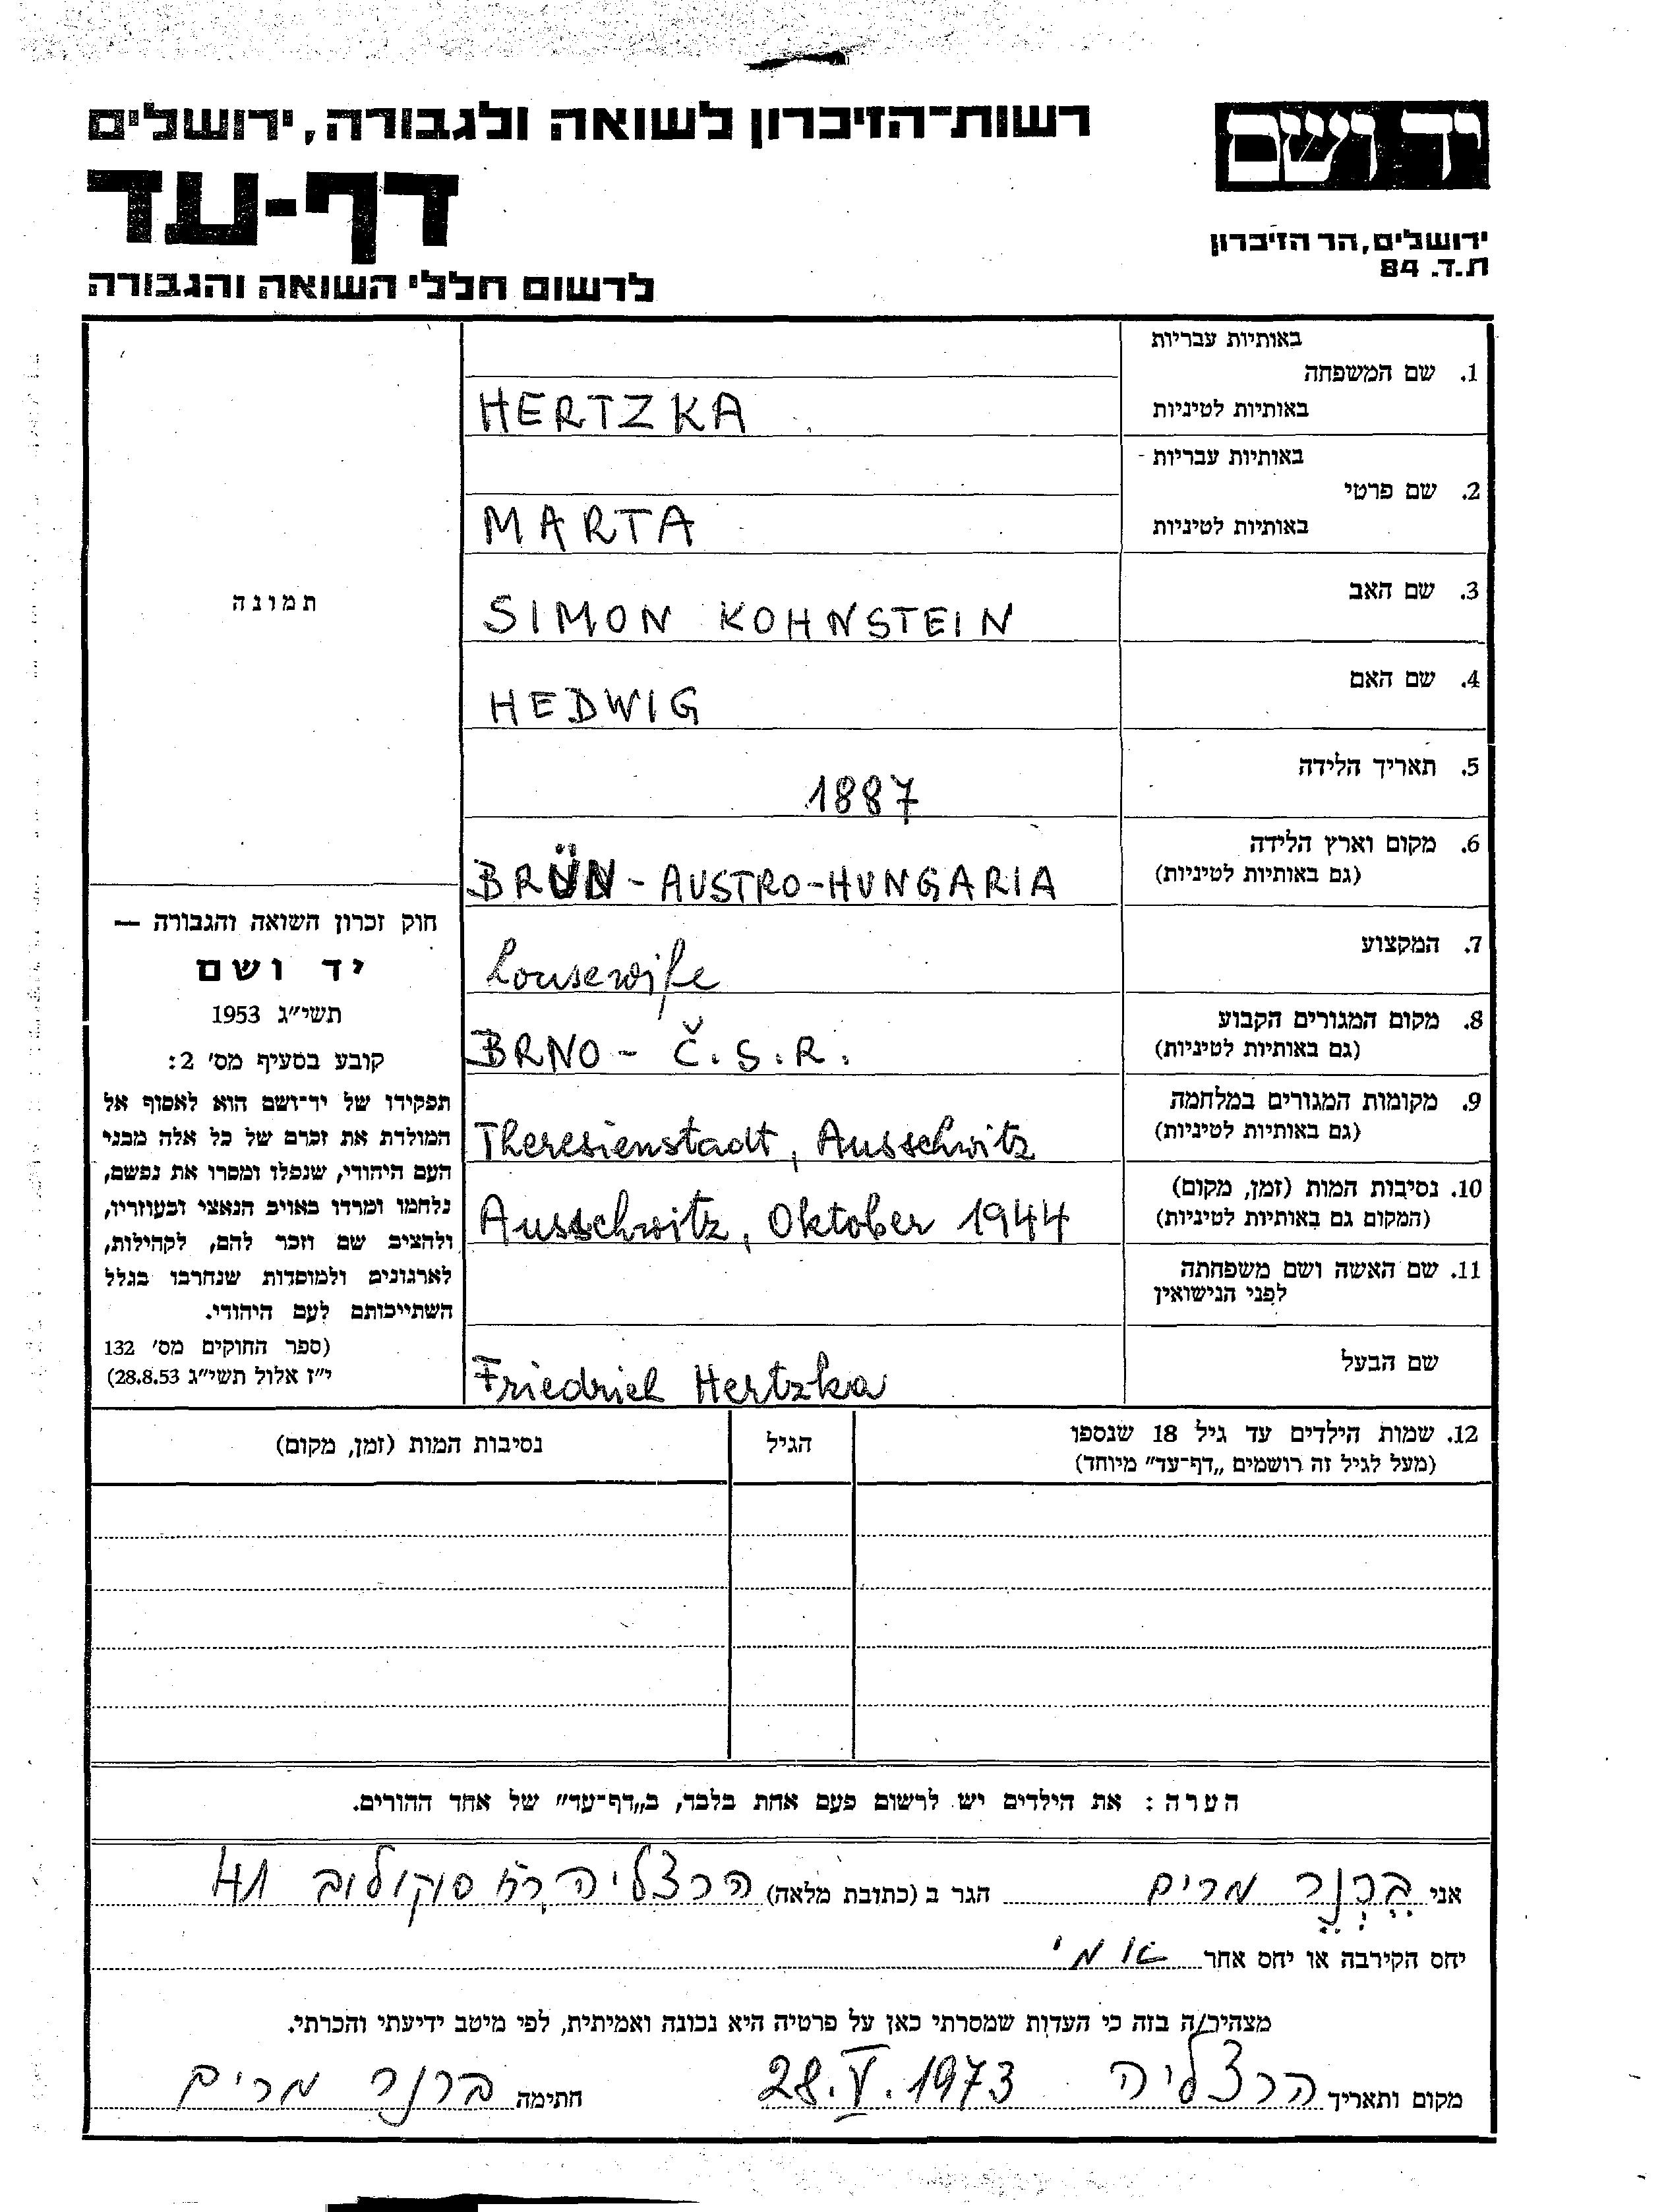 רשות־הזיכרון לשואה ולגבורה, ירושלים
יד ושם
דף-עד
ירושלים, הר הזיכרון
ת.ד. 84
לרשום חללי השואה והגבורה
באותיות עבריות
1. שם המשפחה
באותיות לטיניות
HERTZKA
באותיות עבריות
2. שם פרטי
באותיות לטיניות
MARTA
3. שם האב
SIMON KOHNSTEIN
4. שם האם
HEDWIG
5. תאריך הלידה
1887
6. מקום וארץ הלידה
(גם באותיות לטיניות)
BRÜN - AUSTRO-HUNGARIA
7. המקצוע
housewife
8. מקום המגורים הקבוע
(גם באותיות לטיניות)
BRNO - Č.S.R.
9. מקומות המגורים במלחמה
(גם באותיות לטיניות)
Theresienstadt, Ausschwitz
10. נסיבות המות (זמן, מקום)
(המקום גם באותיות לטיניות)
Ausschwitz, Oktober 1944
11. שם האשה ושם משפחתה
לפני הנישואין
שם הבעל
Friedrich Hertzka
תמונה
חוק זכרון השואה והגבורה —
יד ושם
תשי״ג 1953
קובע בסעיף מס׳ 2:
תפקידו של יד־ושם הוא לאסוף אל
המולדת את זכרם של כל אלה מבני
העם היהודי, שנפלו ומסרו את נפשם,
נלחמו ומרדו באויב הנאצי ובעוזריו,
ולהציב שם וזכר להם, לקהילות,
לארגונים ולמוסדות שנחרבו בגלל
השתייכותם לעם היהודי.
(ספר החוקים מס׳ 132
י״ז אלול תשי״ג 28.8.53)
12. שמות הילדים עד גיל 18 שנספו
(מעל לגיל זה רושמים „דף־עד״ מיוחד)
הגיל
נסיבות המות (זמן, מקום)
הערה: את הילדים יש לרשום פעם אחת בלבד, ב„דף־עד״ של אחד ההורים.
אני בֶּרְנֶר מרים הגר ב (כתובת מלאה) הרצליה רח סוקולוב 41
יחס הקירבה או יחס אחר אמי
מצהיר/ה בזה כי העדות שמסרתי כאן על פרטיה היא נכונה ואמיתית, לפי מיטב ידיעתי והכרתי.
מקום ותאריך הרצליה 28.V.1973 חתימה ברנר מרים